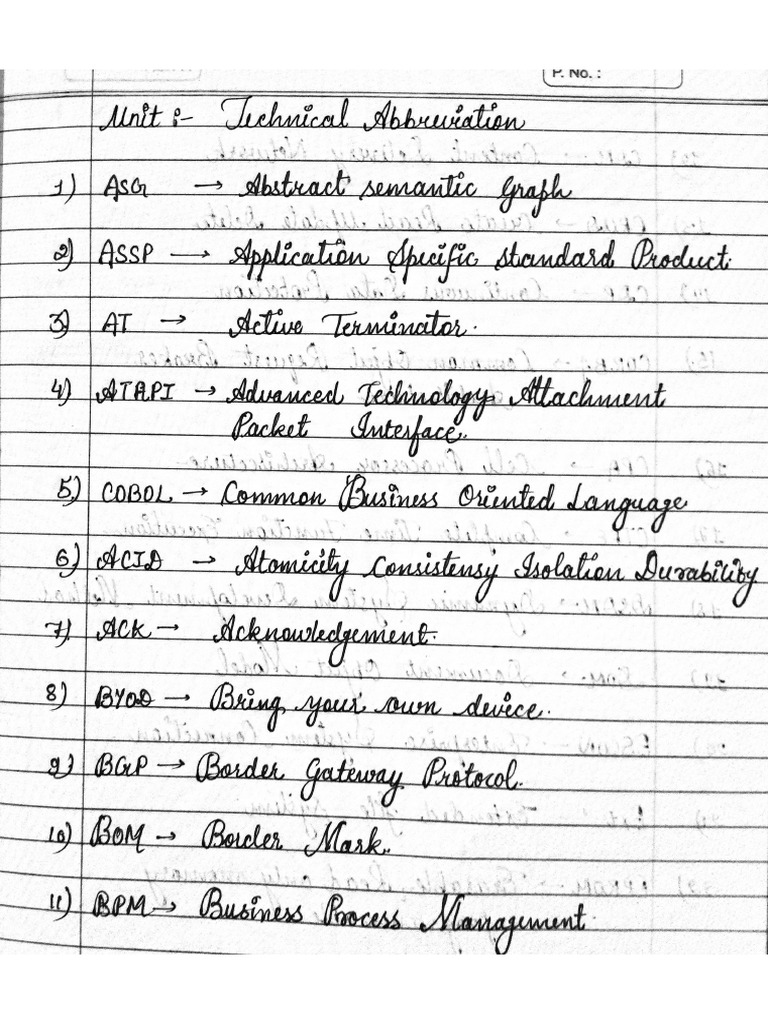 P. No. :
Unit :- Technical Abbreviation
1) ASG → Abstract semantic Graph
2) ASSP → Application Specific standard Product.
3) AT → Active Terminator.
4) ATAPI → Advanced Technology Attachment
Packet Interface.
5) COBOL → Common Business Oriented Language
6) ACID → Atomicity Consistensy Isolation Durability
7) ACK → Acknowledgement.
8) BYOD → Bring your own device.
9) BGP → Border Gateway Protocol.
10) BOM → Border Mark.
11) BPM → Business Process Management.